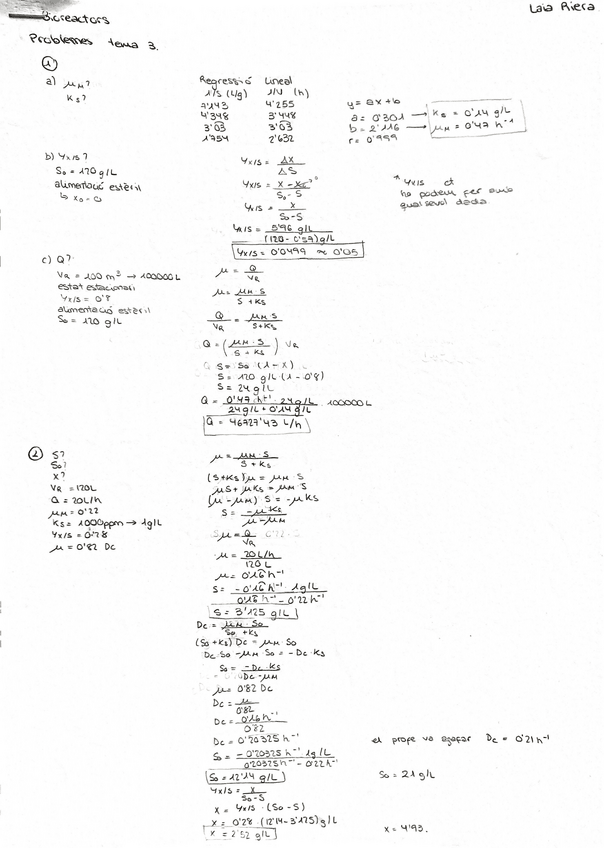 Laia Riera
Bioreactors
Problemes tema 3.
①
a) μM?
Ks?
Regressió Lineal
1/S (L/g) 1/μ (h)
7'143 4'255
4'348 3'448
3'03 3'03
1'754 2'632
y = ax+b
a = 0'301 → Ks = 0'14 g/L
b = 2'116 → μM = 0'47 h⁻¹
r = 0'999
b) Yx/s?
S₀ = 120 g/L
alimentació estèril
↳ x₀ = 0
Yx/s = Δx / ΔS
Yx/s = x - x₀ / S₀ - S
Yx/s = x / S₀ - S
Yx/s = 5'96 g/L / (120 - 0'57) g/L
Yx/s = 0'0499 ≈ 0'05
* Yx/s ct
ho podem fer amb
qualsevol dada
c) Q?
VR = 100 m³ → 100000 L
estat estacionari
Yx/s = 0'8
alimentació estèril
S₀ = 120 g/L
μ = Q / VR
μ = μM · S / S + Ks
Q / VR = μM · S / S + Ks
Q = (μM · S / S + Ks) VR
S = S₀ · (1 - X)
S = 120 g/L (1 - 0'8)
S = 24 g/L
Q = 0'47 h⁻¹ · 24 g/L / 24 g/L + 0'14 g/L · 100000 L
Q = 46727'43 L/h
②
S?
S₀?
X?
VR = 120L
Q = 20L/h
μM = 0'22
Ks = 1000ppm → 1g/L
Yx/s = 0'28
μ = 0'82 Dc
μ = μM · S / S + Ks
(S+Ks) μ = μM · S
μS + μKs = μM · S
(μ - μM) S = -μKs
S = -μKs / μ - μM
μ = Q / VR
μ = 20 L/h / 120 L
μ = 0'16 h⁻¹
S = -0'16 h⁻¹ 1g/L / 0'16 h⁻¹ - 0'22 h⁻¹
S = 3'125 g/L
Dc = μM · S₀ / S₀ + Ks
(S₀+Ks) Dc = μM · S₀
Dc · S₀ - μM · S₀ = -Dc · Ks
S₀ = -Dc · Ks / Dc - μM
μ = 0'82 Dc
Dc = μ / 0'82
Dc = 0'16 h⁻¹ / 0'82
Dc = 0'20325 h⁻¹
el profe va agafar Dc = 0'21 h⁻¹
S₀ = -0'20325 h⁻¹ 1g/L / 0'20325 h⁻¹ - 0'22 h⁻¹
S₀ = 12'14 g/L
S₀ = 21 g/L
Yx/s = x / S₀ - S
X = Yx/s · (S₀ - S)
X = 0'28 · (12'14 - 3'125) g/L
X = 2'52 g/L
X = 4'93.